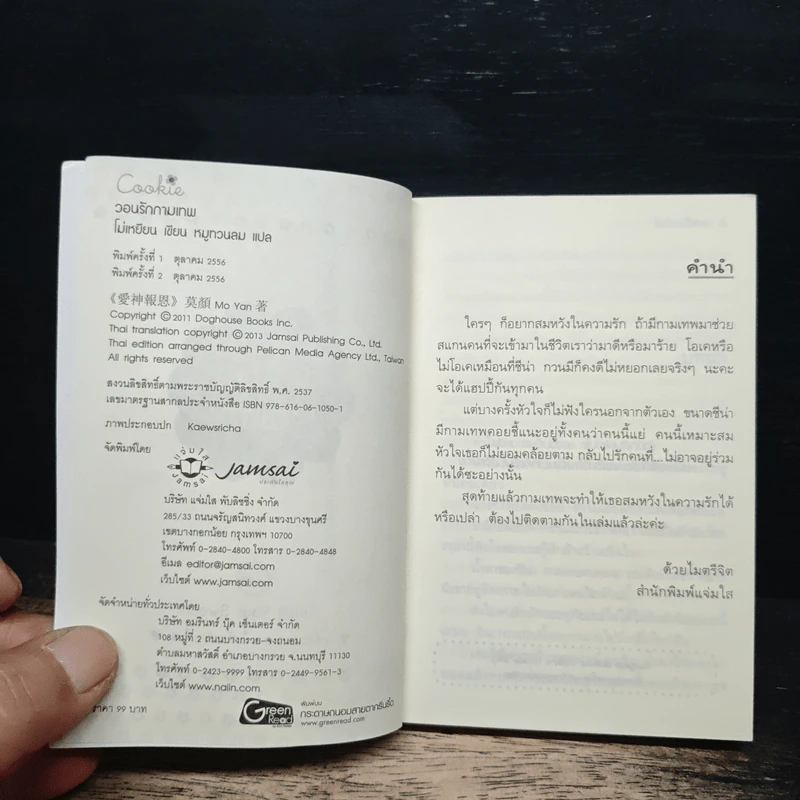 Cookie
วอนรักกามเทพ
โม่เหยียน เขียน หมูทวนลม แปล
พิมพ์ครั้งที่ 1 ตุลาคม 2556
พิมพ์ครั้งที่ 2 ตุลาคม 2556
《愛神報恩》莫顏 Mo Yan 著
Copyright © 2011 Doghouse Books Inc.
Thai translation copyright © 2013 Jamsai Publishing Co., Ltd.
Thai edition arranged through Pelican Media Agency Ltd., Taiwan
All rights reserved
สงวนลิขสิทธิ์ตามพระราชบัญญัติลิขสิทธิ์ พ.ศ. 2537
เลขมาตรฐานสากลประจำหนังสือ ISBN 978-616-06-1050-1
ภาพประกอบปก Kaewsricha
จัดพิมพ์โดย
แจ่มใส
Jamsai
Jamsai
บริษัท แจ่มใส พับลิชชิ่ง จำกัด
285/33 ถนนจรัญสนิทวงศ์ แขวงบางขุนศรี
เขตบางกอกน้อย กรุงเทพฯ 10700
โทรศัพท์ 0-2840-4800 โทรสาร 0-2840-4848
อีเมล editor@jamsai.com
เว็บไซต์ www.jamsai.com
จัดจำหน่ายทั่วประเทศโดย
บริษัท อมรินทร์ บุ๊ค เซ็นเตอร์ จำกัด
108 หมู่ที่ 2 ถนนบางกรวย-จงถนอม
ตำบลมหาสวัสดิ์ อำเภอบางกรวย จ.นนทบุรี 11130
โทรศัพท์ 0-2423-9999 โทรสาร 0-2449-9561-3
เว็บไซต์ www.naiin.com
ราคา 99 บาท
Green Read
พิมพ์บน
กระดาษถนอมสายตากรีนรี้ด
www.greenread.com
คำนำ
ใครๆ ก็อยากสมหวังในความรัก ถ้ามีกามเทพมาช่วย
สแกนคนที่จะเข้ามาในชีวิตเราว่ามาดีหรือมาร้าย โอเคหรือ
ไม่โอเคเหมือนที่ซีน่า กวนมีก็คงดีไม่หยอกเลยจริงๆ นะคะ
จะได้แฮปปี้กันทุกคน
แต่บางครั้งหัวใจก็ไม่ฟังใครนอกจากตัวเอง ขนาดซีน่า
มีกามเทพคอยชี้แนะอยู่ทั้งคนว่าคนนี้แย่ คนนี้เหมาะสม
หัวใจเธอก็ไม่ยอมคล้อยตาม กลับไปรักคนที่...ไม่อาจอยู่ร่วม
กันได้ซะอย่างนั้น
สุดท้ายแล้วกามเทพจะทำให้เธอสมหวังในความรักได้
หรือเปล่า ต้องไปติดตามกันในเล่มแล้วล่ะค่ะ
ด้วยไมตรีจิต
สำนักพิมพ์แจ่มใส